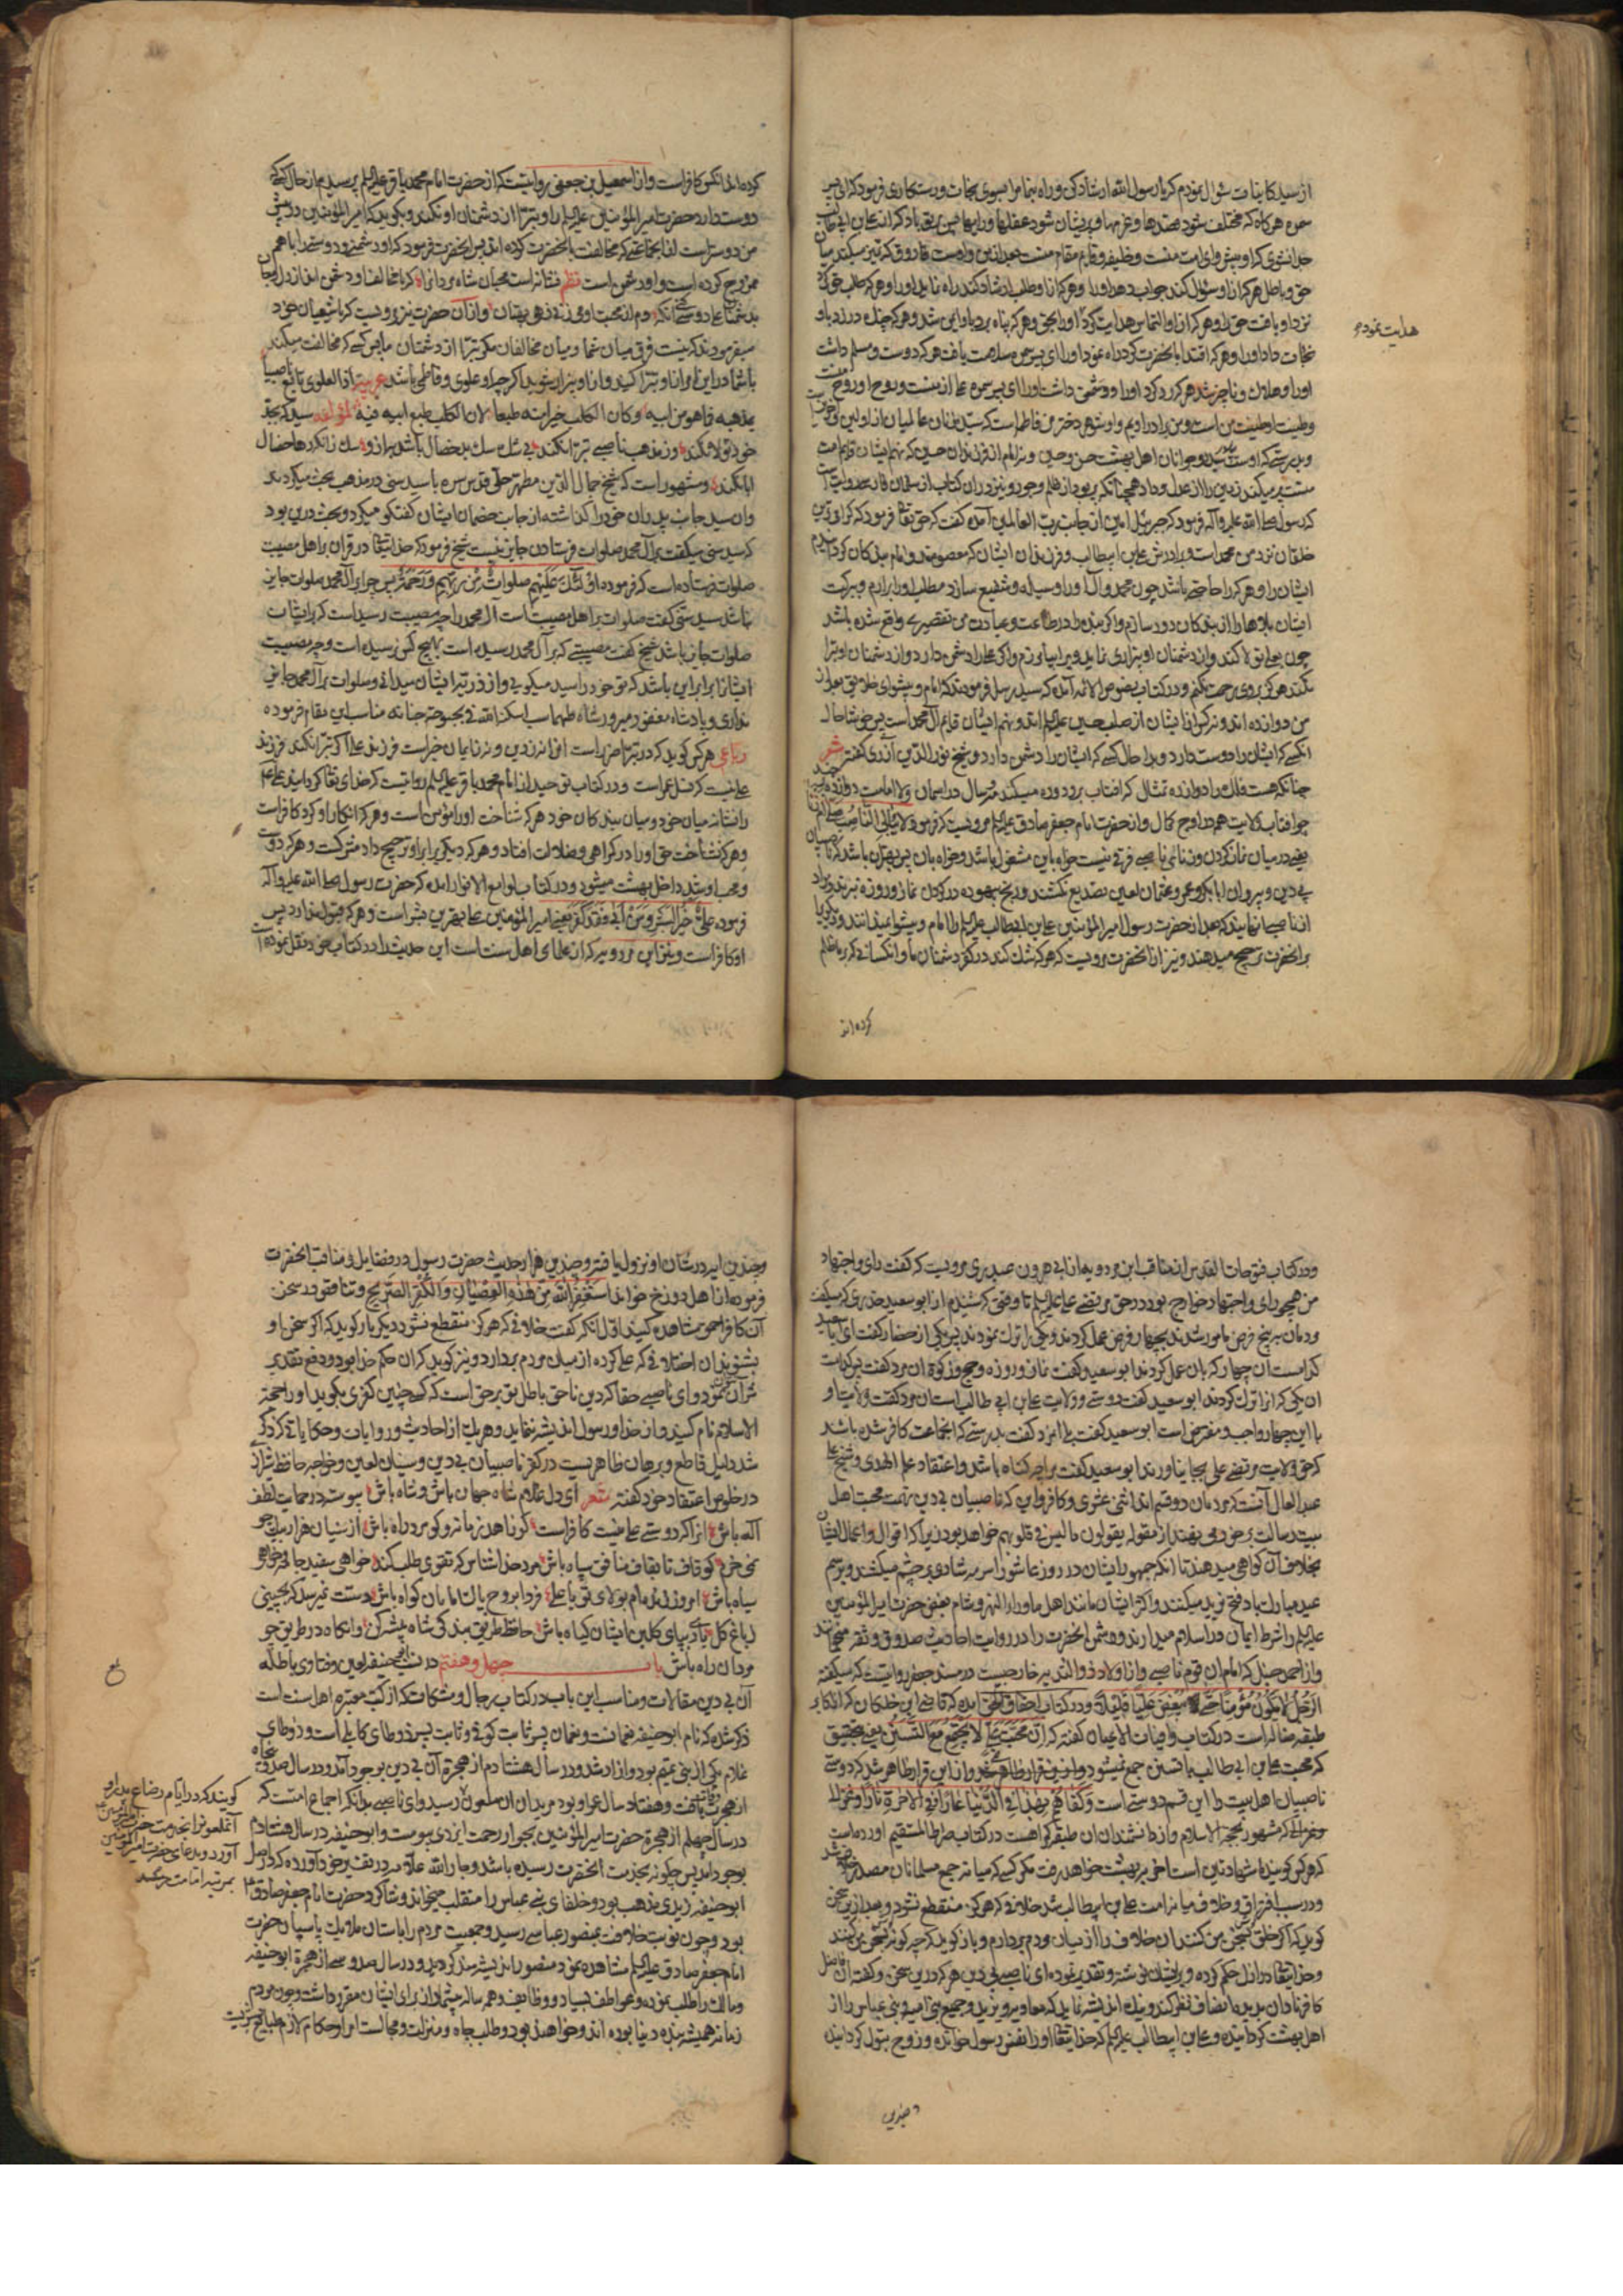 از سید کاینات سؤال نمودم که یا رسول الله ارشاد کن و راه بنما مرا بسوی نجات و رستکاری فرمود که ای پسر
سمره هرکاه که مختلف شود قصدها و پریشان شود عقلها و رایها
حق و باطل هرکه از او سؤال کند جواب دهد او را و هرکه از او طلب ارشاد کند راه نماید او را و هرکه طلب حق کرد
نزد او یافت حق را و هرکه از او التماس هدایت کرد او را
هدایت نمود
نجات داد او را و هرکه اقتدا بانحضرت کرد راه نمود او را ای پسر سمره سلامت یافت هرکه دوست و مسلم داشت
او را و هلاک و ناچیز شد هرکه رد کرد او را و دشمن داشت او را ای پسر سمره علی از منست و روح او روح منست
و طینت او طینت من است و من برادر اویم و او شوهر دختر من فاطمه است که سیده زنان عالمیان از اولین و آخرین
و بدرستی که از اوست دو سید جوانان اهل بهشت حسن و حسین و نه امام از فرزندان حسین که نهم ایشان قایم امت
منست پر میکند زمین را از عدل و داد همچنانکه پر بود از ظلم و جور و نیز در آن کتاب از سلمان فارسی روایت است
که رسول صلی الله علیه و آله فرمود که جبرئیل امین از جانب رب العالمین آمده گفت که حق تعالی فرمود که
خلقان نزد من محمد است و برادرش علی بن ابیطالب و فرزندان ایشان که معصومند و امام
ایشان را و هرکه را حاجتی باشد چون محمد و آل او را وسیله و شفیع سازد مطلب او را برارم و ببرکت
ایشان بلاها را از بندکان دور سازم و اگر بنده را در طاعت و عبادت من تقصیری واقع شده باشد
چون بعلی تولا کند و از دشمنان او بیزاری نماید ویرا بیامرزم و اگر علی را دشمن دارد و از دشمنان او تبرا
نکند هرکز بروی رحمت نکنم و در کتاب نصوص الائمه آمده که سید رسل فرمودند که امام و پیشوای خلایق بعد از
من دوازده اند و نه کس از ایشان از صلب حسین علیه السلم اند و نهم ایشان قایم آل محمد است پس خوشا حال
انکسی که ایشان را دوست دارد و بدا حال کسی که ایشان را دشمن دارد و شیخ نورالدین آذری گفته شعر
چنانکه هست فلک را دوازده تمثال که افتاب برو دوره میکند مه و سال در اسمان ولا امامت دوازده
چو افتاب ولایت همه در اوج کمال و از حضرت امام جعفر صادق علیه السلم مرویست که فرمود لا یبالی الناصب صلی ام زنا
یعنی در میان نماز کردن و زنای ناصبی فرقی نیست خواه باین مشغول باشد و خواه بان پس بهتر آن باشد که ناصبیان
بی دین و پیروان ابابکر و عمر و عثمان لعین تصدیع نکشند و رنج بیهوده در کردن نماز و روزه نبرند
از ناصبی انهایند که بعد از حضرت رسول امیر المؤمنین علی بن ابیطالب علیه السلم را امام و پیشوا نمیدانند و دیکری را
برانحضرت ترجیح میدهند و نیز از انحضرت مرویست که هرکه شک کند در کفر دشمنان ما و انکسانی که بر ما ظلم
کرده اند
کرده اند انکس کافر است و از اسمعیل بن جعفی روایتست که از حضرت امام محمد باقر علیه السلم پرسیدم از حال کسی که
دوست دارد حضرت امیر المؤمنین علیه السلم را و تبرا از دشمنان او نکند و بکوید که امیر المؤمنین در پیش
من دوستر است از انجماعتی که مخالفت بانحضرت کرده اند پس انحضرت فرمود که او دشمنی و دوستی را با هم
ممزوج کرده است و او دشمن است نظم
میفرمودند که نیست فرق میان شما و میان مخالفان مکر تبرا از دشمنان ما پس کسی که مخالفت میکند
با شما در این امر از او تبرا کنید و از او بیزار شوید اکر چه او علوی و فاطمی باشد عربیه اذا العلوی تابع ناصبیا
بمذهبه فما هو من ابیه وکان الکلب خیرا منه طبعا لان الکلب طبع ابیه فیه لمؤلفه سید که بجد
خود تولا نکند وز مذهب ناصبی تبرا نکند بی شک سک بد خصال باشد به از او سک زانکه رها خصال
ابا نکند و مشهور است که شیخ جمال الدین مطهر حلی قدس سره با سید سنی در مذهب بحث میکردند
و ان سید جانب پدران خود را گذاشته از جانب خصمان ایشان کفتکو میکرد و بحث درین بود
که سید سنی میکفت بر آل محمد صلوات فرستادن جایز نیست شیخ فرمود که حق تعالی در قران بر اهل مصیبت
صلوات فرستاده است که فرموده اولئک علیهم صلوات من ربهم ورحمة پس چرا بر آل محمد صلوات جایز
نباشد سید سنی گفت صلوات بر اهل مصیبت است آل محمد را چه مصیبت رسیده است که بر ایشان
صلوات جایز باشد شیخ گفت مصیبتی که بر آل محمد رسیده است بهیچ کس نرسیده است و چه مصیبت
ایشانرا برابر این باشد که تو خود را سید میگویی و از ذریه ایشان میدانی و صلوات بر آل محمد جایز
نداری و پادشاه مغفور مبرور شاه طهماسب اسکنه الله فی بحبوحة جنانه مناسب این مقام فرموده
رباعی هر کس گوید که در تبرا ضرر است
علی نیست که نسل عمر است و در کتاب توحید از امام محمد باقر علیه السلم روایتست که خدای تعالی کردانیده علی را
نشانه میان خود و میان بندکان خود هرکه شناخت او را مؤمن است و هرکه انکار او کرد کافر است
و هرکه نشناخت حق او را در کمراهی و ضلالت افتاد و هرکه دیکری را بر او ترجیح داد مشرکست و هرکه دوست
و محب او شد داخل بهشت میشود و در کتاب لوامع الانوار آمده که حضرت رسول صلی الله علیه و آله
فرموده علی خیر البشر ومن ابی فقد کفر یعنی امیر المؤمنین علی بهترین بشر است و هرکه قبول ندارد پس
او کافر است و نیز ابن مردویه که از علمای اهل سنت است این حدیث را در کتاب خود نقل نموده است
و در کتاب فتوحات القدس از مناقب ابن مردویه از ابی هرون عبدی مرویست که گفت رای و اجتهاد
من همچو رای و اجتهاد خوارج بود در حق مرتضی علی علیه السلم تا وقتی که شنیدم از ابو سعید خدری که میکفت
مردمان به پنج فرض مامور شدند بچهار فرض عمل کردند و یکی را ترک نمودند پس یکی از حضار گفت ای ابا سعید
کدامست ان چهار که بان عمل کردند ابو سعید گفت نماز و روزه و حج و زکوة ان مرد گفت پس کدامست
ان یکی که از ا ترک کردند ابو سعید گفت دوستی و ولایت علی بن ابی طالب است ان مرد گفت ولایت او
با این چهار واجب و مفترض است ابو سعید گفت بلی انمرد گفت بدرستی که انجماعت کافر شده باشند
که حق ولایت مرتضی علی بجا نیاورند ابو سعید گفت مرا چه کناه باشد و اعتقاد علم الهدی و شیخ علی
عبد العال آنست که مردمان دو قسم اند اثنی عشری و کافر و این که ناصبیان بی دین تهمت محبت اهل
بیت رسالت بر خود می نهند از مقوله یقولون ما لیس فی قلوبهم خواهد بود زیرا که اقوال و اعمال ایشان
بخلاف آن کواهی میدهند تا انکه جمهور ایشان در روز عاشورا سرمه شادی بر چشم میکشند و برسم
عید مبارک باد فتح یزید میکنند و اکثر ایشان مانند اهل ماوراء النهر و شام بغض حضرت امیر المؤمنین
علیه السلم را شرط ایمان و اسلام میدارند و دشمن انحضرت را در روایت احادیث صدوق و ثقه میخوانند
و از احمد حنبل که امام آن قوم ناصبی و از اولاد ذو الثدیه خارجیست در مسند جعفر روایتست که میکفته
الرجل لا یکون مؤمنا حتی یبغض علیا قلیلا و در کتاب احقاق الحق آمده که قاضی ابن خلکان که از اکابر
طبقه ضاله است در کتاب وافیات الاعیان گفته که ان محبة علی لا یجتمع مع التسنن یعنی بتحقیق
که محبت علی بن ابی طالب با تسنن جمع نمیشود و از این قرار ظاهر شد که دوستی
ناصبیان اهل بیت را این قسم دوستی است وکفاهم بهذا فی الدنیا عارا وفی الاخرة نارا
و غزالی که مشهور بحجة الاسلام و از دانشمندان ان طبقه کمراهست در کتاب صراط المستقیم آورده است
که هرکس کوینده شهادتین است اخر ببهشت خواهد رفت مکر کسی که میانه جمع مسلمانان مصدر خلاف شد
و در سبب افتراق و خلاف میانه امت علی بن ابیطالب شد خلافی که هرکز منقطع نشود و بعد ازین سخن
کوید که اکر خلق سخن من کنند ان خلاف را از میان مردم بردارم و باز کوید که چه کونه سخن من کنند
و خدایتعالی در ازل حکم کرده و بر ایشان نوشته و تقدیر نموده ای ناصبی بی دین هرکه درین سخن و کفته ان فاضل
کافر نادان بدیده انصاف نظر کند و نیک اندیشه نماید که معاویه و یزید و جمیع بنی امیه و بنی عباس را از
اهل بهشت کردانیده و علی بن ابیطالب علیه السلم که خدایتعالی او را نفس رسول خوانده و زوج بتول کردانیده
و چندین
و چندین ایه در شان او نزول یافته و چندین هزار حدیث حضرت رسول در فضایل و مناقب انحضرت
فرموده از اهل دوزخ خواند استغفر الله من هذه العصیان والکفر الصریح و تناقض در سخن
آن کافر احمق مشاهده کنید اول انکه کفت خلافی که هرکز منقطع نشود دیکر بار کوید که اکر سخن او
بشنوند ان اختلافی که علی کرده از میان مردم بردارد و نیز کوید که ان حکم خدا بود و دفع تقدیر
نتوان نمود و ای ناصبی حقا که دین ناحق باطل تو بر حق است که کسی چنین کفری بکوید او را حجة
الاسلام نام کنید و از خدا و رسول اندیشه ننماید و هر یک از احادیث و روایات و حکایاتی که ذکر
شد دلیل قاطع و برهان ظاهریست در کفر ناصبیان بی دین و سنیان لعین و خواجه حافظ شیراز
در خلوص اعتقاد خود کفته شعر ای دل غلام شاه جهان باش و شاه باش پیوسته در حمایت لطف
اله باش انرا که دوستی علی نیست کافر است کو زاهد زمانه و کو مرد راه باش از سنیان هزار بیک جو
نمی خرم کو قاف تا بقاف منافق سپاه باش مرد خدا شناس که تقوی طلب کند خواهی سفید جامه و خواهی
سیاه باش امروز زنده ام بولای تو یا علی فردا بروح پاک امامان کواه باش دستت نمیرسد که بچینی
ز باغ کل باری بپای کلبن ایشان کیاه باش حافظ طریق بندکی شاه پیشه کن وانکاه در طریق چو
مردان راه باش باب چهل و هفتم در نسب ابو حنیفه لعین و فتاوی باطله
آن بی دین مقالات و مناسب این باب در کتاب رجال و مشکات که از کتب معتبره اهل سنت است
ذکر شده که نام ابو حنیفه نعمانست و نعمان پسر ثابت کوفی و ثابت پسر ذوطای کابلی است و ذوطای
غلام یکی از بنی تمیم بود و ازاد شد و در سال هشتادم از هجرة آن بی دین بوجود آمد و در سال صد و پنجاه
از هجرت وفات یافت و هفتاد سال عمر او بود مریدان ان ملعون رسید و ای ناصبی بدانکه اجماع امتست که
در سال چهلم از هجرة حضرت امیر المؤمنین بجوار رحمت ایزدی پیوست و ابو حنیفه در سال هشتادم
بوجود آمد پس چکونه بخدمت انحضرت رسیده باشد و جار الله علامه در تفسیر خود آورده که در اصل
ابو حنیفه زیدی مذهب بود و خلفای بنی عباس را متقلب میخواند و شاکرد حضرت امام جعفر صادق ع
بود و چون نوبت خلافت بمنصور عباسی رسید و جمعیت مردم را باستان ملایک پاسبان حضرت
امام جعفر صادق علیه السلم مشاهده نمود منصور اندیشه مند کردید و در سال صد و سی از هجرة ابو حنیفه
و مالک را طلب نموده و عواطف بسیار و وظایف و همه ساله بیشمار از برای ایشان مقرر داشت و چون مردم
زمانه همیشه بنده دنیا بوده اند و خواهند بود و طلب جاه و منزلت و مجالست امرا و حکام لازم طبایع بشریت
کویند که در ایام رضاع پدر او
آن ملعون را بخدمت حضرت امیر المؤمنین
آورد و بدعای حضرت امیر المؤمنین
بمرتبه امامت رسید